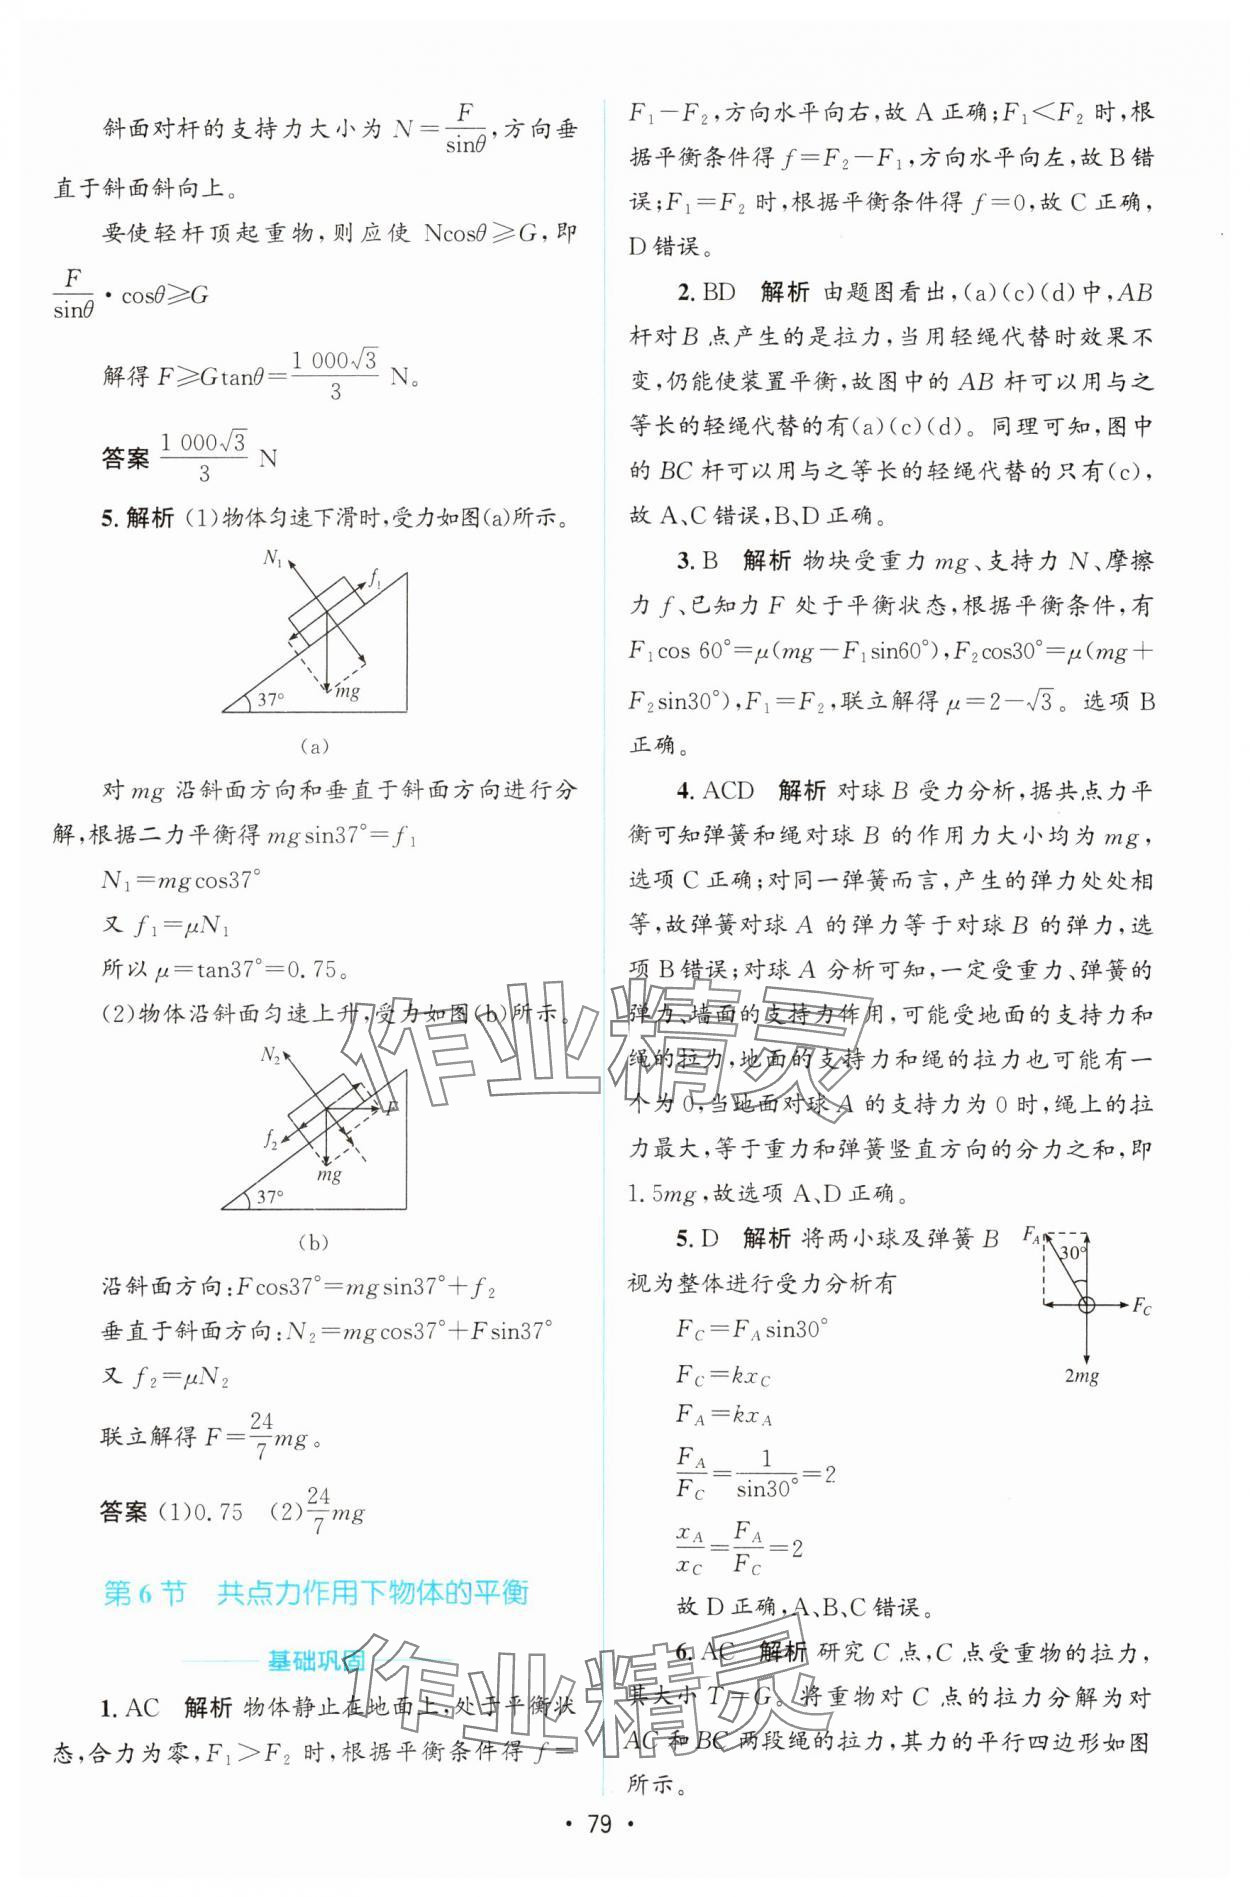 斜面对杆的支持力大小为 N=F/sinθ,方向垂
直于斜面斜向上。
要使轻杆顶起重物,则应使 Ncosθ≥G,即
F/sinθ·cosθ≥G
解得 F≥Gtanθ=1 000√3/3 N。
答案 1 000√3/3 N
5. 解析 (1)物体匀速下滑时,受力如图(a)所示。
N₁
f₁
mg
37°
(a)
对 mg 沿斜面方向和垂直于斜面方向进行分
解,根据二力平衡得 mgsin37°=f₁
N₁=mgcos37°
又 f₁=μN₁
所以 μ=tan37°=0.75。
(2)物体沿斜面匀速上升,受力如图(b)所示。
N₂
F
f₂
mg
37°
(b)
沿斜面方向:Fcos37°=mgsin37°+f₂
垂直于斜面方向:N₂=mgcos37°+Fsin37°
又 f₂=μN₂
联立解得 F=24/7mg。
答案 (1)0.75 (2)24/7mg
第 6 节 共点力作用下物体的平衡
基础巩固
1. AC 解析 物体静止在地面上,处于平衡状
态,合力为零,F₁>F₂ 时,根据平衡条件得 f=
F₁-F₂,方向水平向右,故 A 正确;F₁<F₂ 时,根
据平衡条件得 f=F₂-F₁,方向水平向左,故 B 错
误;F₁=F₂ 时,根据平衡条件得 f=0,故 C 正确,
D 错误。
2. BD 解析 由题图看出,(a)(c)(d)中,AB
杆对 B 点产生的是拉力,当用轻绳代替时效果不
变,仍能使装置平衡,故图中的 AB 杆可以用与之
等长的轻绳代替的有(a)(c)(d)。同理可知,图中
的 BC 杆可以用与之等长的轻绳代替的只有(c),
故 A、C 错误,B、D 正确。
3. B 解析 物块受重力 mg、支持力 N、摩擦
力 f、已知力 F 处于平衡状态,根据平衡条件,有
F₁cos 60°=μ(mg-F₁sin60°),F₂cos30°=μ(mg+
F₂sin30°),F₁=F₂,联立解得 μ=2-√3。选项 B
正确。
4. ACD 解析 对球 B 受力分析,据共点力平
衡可知弹簧和绳对球 B 的作用力大小均为 mg,
选项 C 正确;对同一弹簧而言,产生的弹力处处相
等,故弹簧对球 A 的弹力等于对球 B 的弹力,选
项 B 错误;对球 A 分析可知,一定受重力、弹簧的
弹力、墙面的支持力作用,可能受地面的支持力和
绳的拉力,地面的支持力和绳的拉力也可能有一
个为 0,当地面对球 A 的支持力为 0 时,绳上的拉
力最大,等于重力和弹簧竖直方向的分力之和,即
1.5mg,故选项 A、D 正确。
5. D 解析 将两小球及弹簧 B
视为整体进行受力分析有
F_A
30°
F_C
2mg
F_C=F_Asin30°
F_C=kx_C
F_A=kx_A
F_A/F_C=1/sin30°=2
x_A/x_C=F_A/F_C=2
故 D 正确,A、B、C 错误。
6. AC 解析 研究 C 点,C 点受重物的拉力,
其大小 T=G。将重物对 C 点的拉力分解为对
AC 和 BC 两段绳的拉力,其力的平行四边形如图
所示。
· 79 ·
作业精灵
作业精灵